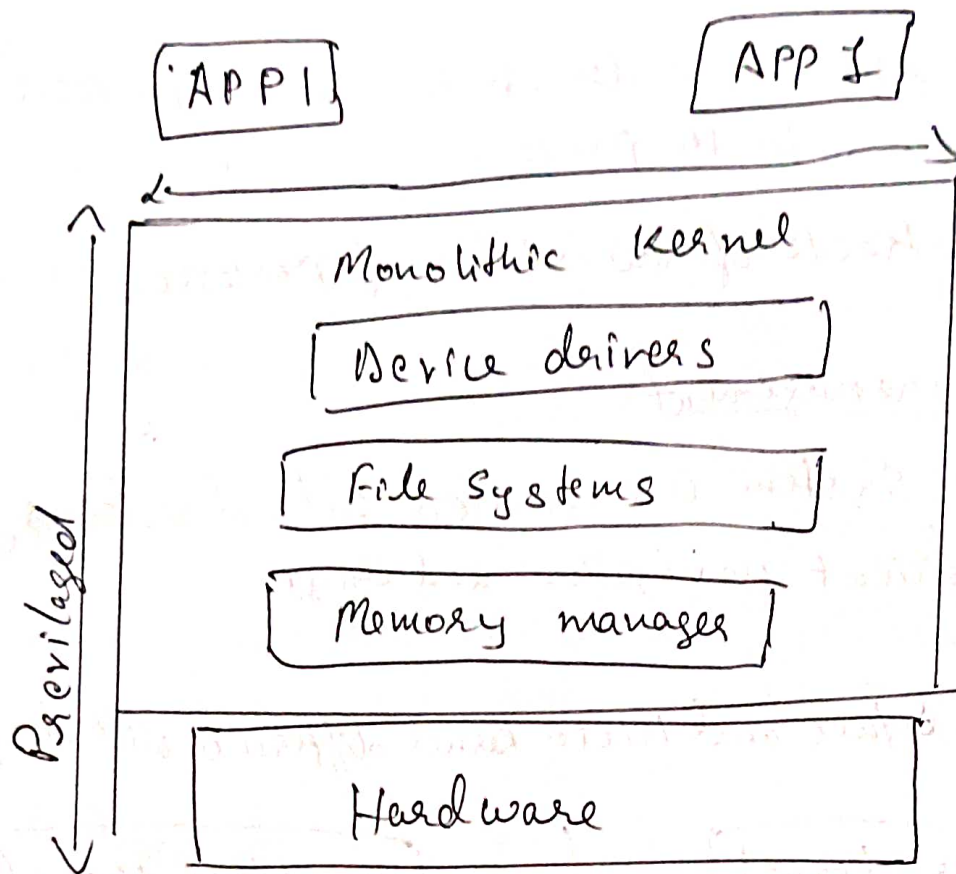 APP1
APP I
Monolithic Kernel
Device drivers
File Systems
Memory manager
Previlaged
Hardware